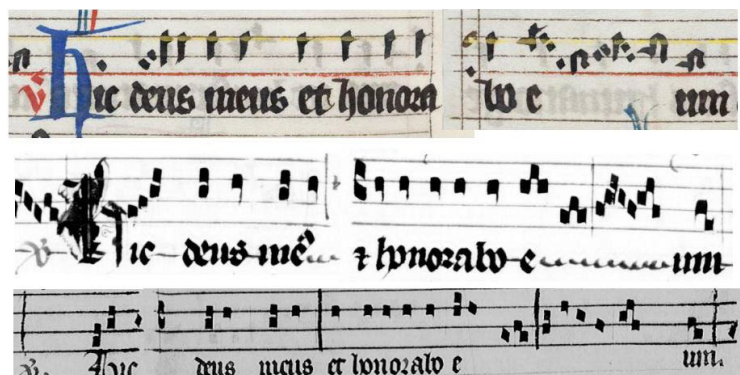 V Hic deus meus et honora bo e um
V Hic deus meꝰ ⁊ honorabo e um
V. Hic deus meus et honorabo e um.